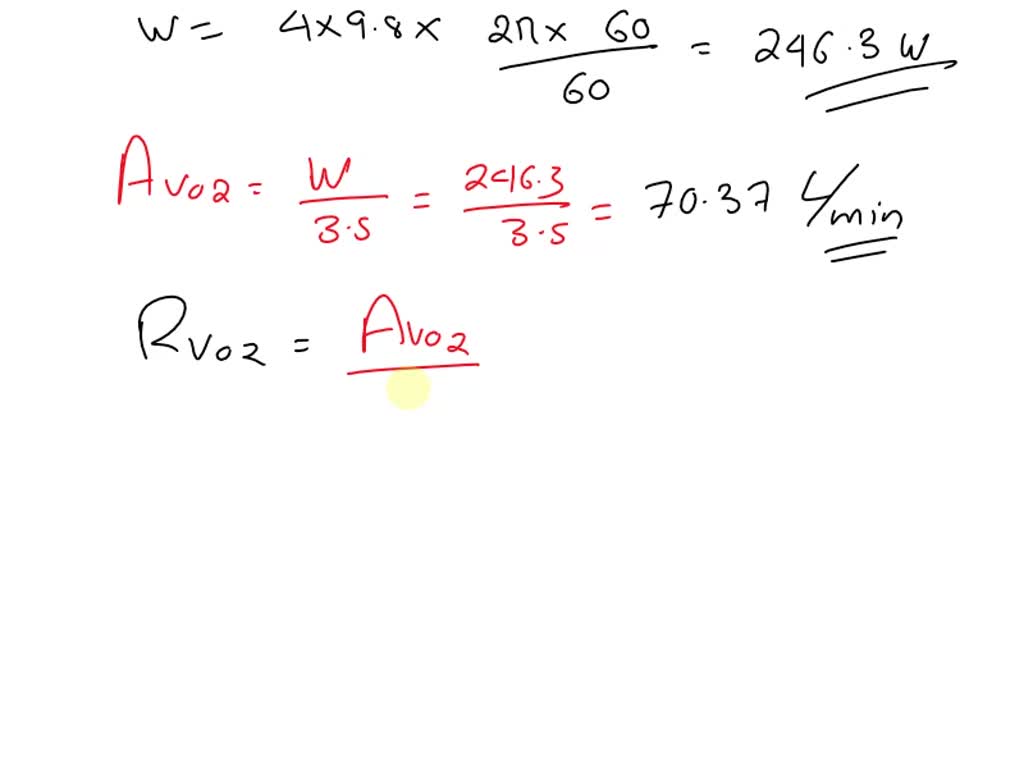 W = 4x9.8x 2π x 60 / 60 = 246.3 W
Avo2 = W / 3.5 = 246.3 / 3.5 = 70.37 L/min
Rvo2 = Avo2